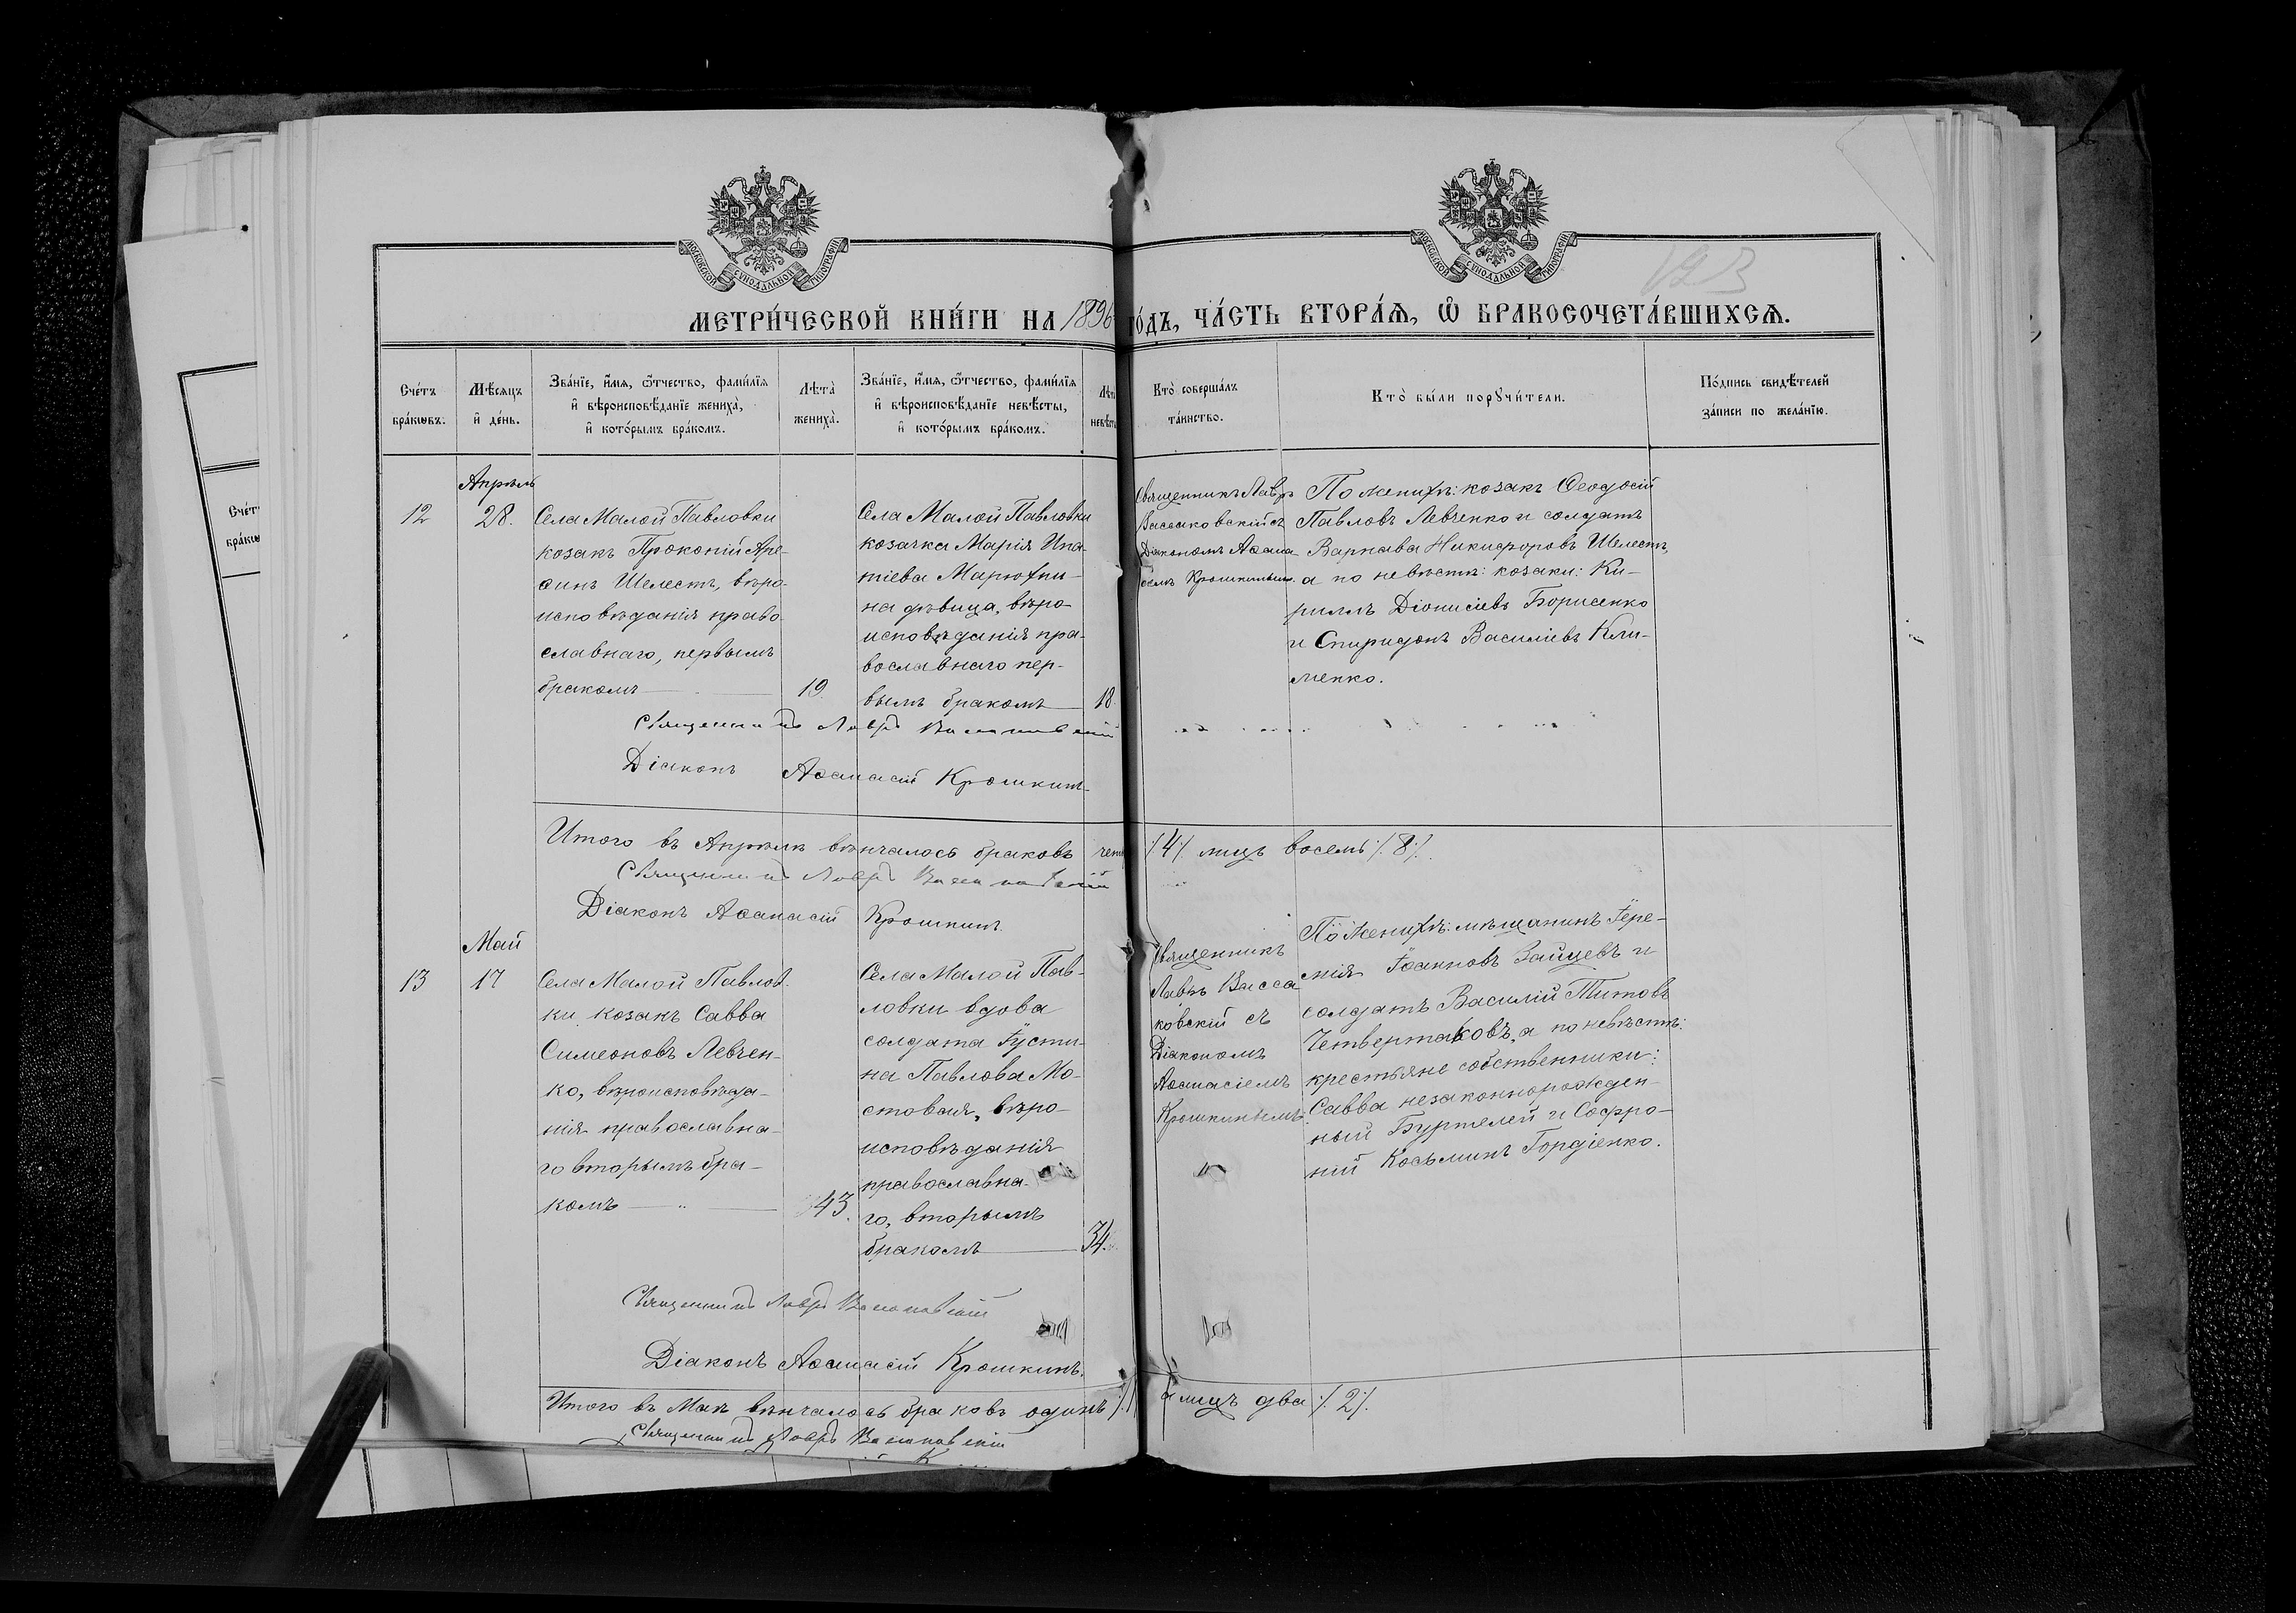 МОСКОВСКОЙ СѴНОДАЛЬНОЙ ТИПОГРАФІИ
МОСКОВСКОЙ СѴНОДАЛЬНОЙ ТИПОГРАФІИ
МЕТРИ́ЧЕСКОЙ КНИ́ГИ НА 1896 ГО́ДЪ, ЧА́СТЬ ВТОРА́Ѧ, Ѡ҆ БРАКОСОЧЕТА́ВШИХСѦ.
Сче́тъ
бра́кѡвъ.
Мѣ́сѧцъ
и҆ де́нь.
Зва́нїе, и҆́мѧ, ѻ҆́тчество, фами́лїѧ
и҆ вѣроисповѣ́данїе жениха̀,
и҆ кото́рымъ бра́комъ.
Лѣта̀
жениха̀.
Зва́нїе, и҆́мѧ, ѻ҆́тчество, фами́лїѧ
и҆ вѣроисповѣ́данїе невѣ́сты,
и҆ кото́рымъ бра́комъ.
Лѣта
невѣ́с
Кто̀ соверша́лъ
та́инство.
Кто̀ бы́ли порꙋчи́тели.
По́дпись свидѣ́телей
за́писи по жела́нїю.
Сче́т
бра́кѡ
Апрѣль
12
28.
Села Малой Павловки
козакъ Прокопій Аре-
ѳинъ Шелестъ, вѣро-
исповѣданія право-
славнаго, первымъ
бракомъ
19.
Села Малой Павловки
козачка Марія Ипа-
тіева Марюхни-
на дѣвица, вѣро-
исповѣданія пра-
вославнаго пер-
вымъ бракомъ
18
Священникъ Лавръ
Вассаковскій съ
Діакономъ Аѳана
сіемъ Крошкинымъ.
По женихѣ: козакъ Ѳеодосій
Павловъ Левченко и солдатъ
Варнава Никифоровъ Шелестъ,
а по невѣстѣ: козаки: Ки-
риллъ Діонисіевъ Борисенко
и Спиридонъ Василіевъ Кли-
менко.
Священникъ Лавръ Вассаковскій
Діаконъ Аѳанасій Крошкинъ
Итого въ Апрѣлѣ вѣнчалось браковъ чет /4/. лицъ восемь /.8./.
Священникъ Лавръ Вассаковскій
Діаконъ Аѳанасій Крошкинъ
Май
13
17
Села Малой Павлов-
ки козакъ Савва
Симеоновъ Левчен-
ко, вѣроисповѣда-
нія православна-
го вторымъ бра-
комъ
43.
Села Малой Пав-
ловки вдова
солдата Іусти-
на Павлова Мо-
стовая, вѣро-
исповѣданія
православна-
го, вторымъ
бракомъ
34.
Священникъ
Лавръ Васса
ковскій съ
Діакономъ
Аѳанасіемъ
Крошкинымъ.
По женихѣ: мѣщанинъ Іере-
мія Іоанновъ Зайцевъ и
солдатъ Василій Титовъ
Четвертаковъ, а по невѣстѣ:
крестьяне собственники:
Савва незаконнорожден-
ный Буртелей и Софро-
ній Косьминъ Гордіенко.
Священникъ Лавръ Вассаковскій
Діаконъ Аѳанасій Крошкинъ.
Итого въ Маѣ вѣнчалось браковъ одинъ /.1 а лицъ два /.2/.
Священникъ Лавръ Вассаковскій